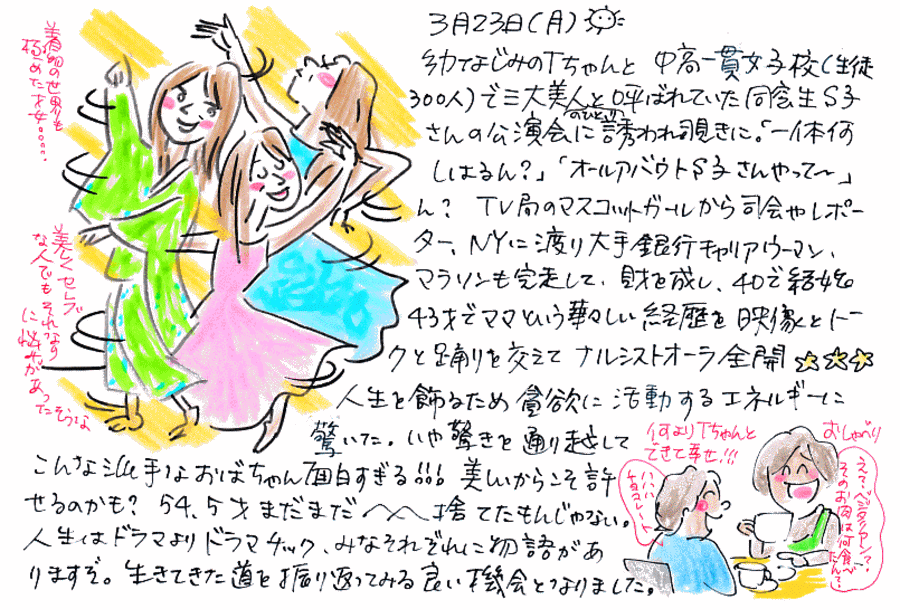 3月23日(月)
幼なじみのTちゃんと 中高一貫女子校(生徒
300人)で三大美人と呼ばれていた同窓生S子
のひとり
さんの公演会に誘われ覗きに。「一体何
しはるん?」「オールアバウトS子さんやって〜」
ん? TV局のマスコットガールから司会やレポー
ター、NYに渡り大手銀行キャリアウーマン、
マラソンも完走して、財を成し、40で結婚
43才でママという華々しい経歴を映像とトー
クと踊りを交えてナルシストオーラ全開
人生を飾るため貪欲に活動するエネルギーに
驚いた。いや驚きを通り越して
こんな派手なおばちゃん面白すぎる!!! 美しいからこそ許
せるのかも? 54、5才まだまだ 捨てたもんじゃない。
人生はドラマよりドラマチック、みなそれぞれに物語があ
りますぞ。生きてきた道を振り返ってみる良い機会となりました。
着物の世界も
極めた才女。。。。
美しくセレブ
な人でもそれなり
に悩みがあっ
たそうな
何よりTちゃんと
できて幸せ!!!
おしゃべり
ハハハ
えっ?ベジタリアン?
そのお肉は何食べ
たん?